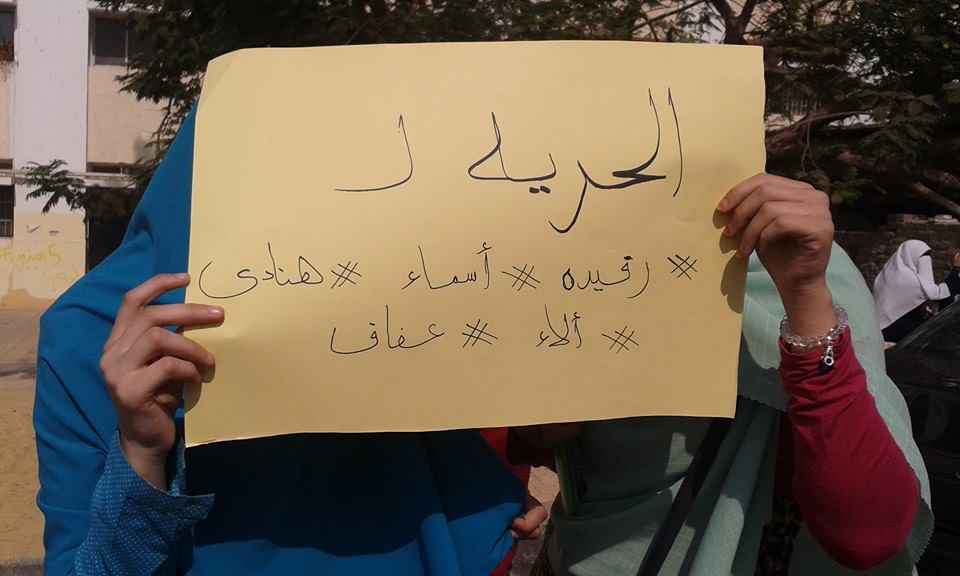 الحريه لـ
# رقيده # أسماء # هنادى
# ألاء # عفاف